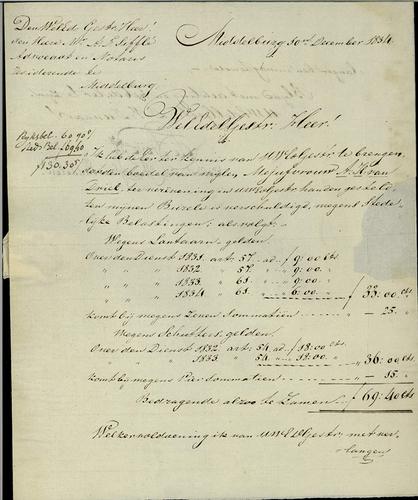 Den WelEd. Gestr. Heer!
den Heere Mr. A. J.
Advocaat en Notaris
residerende te
Middelburg
Middelburg 30st December 1834
WelEdelGestr: Heer!
Rijksbel. 60.90
Sted: Bel. 69.40
f 130.30
Ik heb de eer ter kennis van UWEdGestr: te brengen,
dat den boedel van wijlen, Mejufvrouw A. H. van
te vernieuwing in UWEdGestr: handen gesteld,
ten mijnen Burele is verschuldigd, wegens Stede-
lijke Belastingen; als volgt.
Wegens Lantaarn-gelden.
Over den Dienst 1831. art: 57. ad. f 9:00 cts
" " " 1832 " 57. " " 9:00. "
" " " 1833 " 61. " " 9:00. "
" " " 1834 " 61. " " 6:00. " f 33:00 cts
komt bij wegens Zeven Sommatien - - - " - 25. "
Wegens Schutters.gelden.
Over den Dienst 1832 art: 54. ad. f 18:00 cts
" " 1833 54. " - 18:00. " " 36:00 cts
komt bij wegens Vier Sommatien - - - " - 15. "
Bedragende alzoo te Zamen - - f 69:40 cts
Welker voldoening ik van UWEdGestr: met ver-
langen